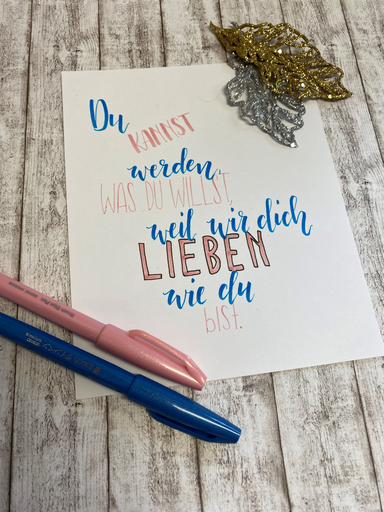 Du
KANNST
werden,
WAS DU WILLST,
weil wir dich
LIEBEN
wie du
bist.